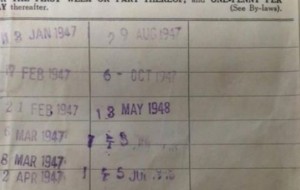 THE FIRST WEEK OR PART THEREOF, and ONE-PENNY PER
thereafter. (See By-laws).
8 JAN 1947 29 AUG 1947
FEB 1947 6 - OCT 1947
21 FEB 1947 13 MAY 1948
MAR 1947
8 MAR 1947
2 APR 1947